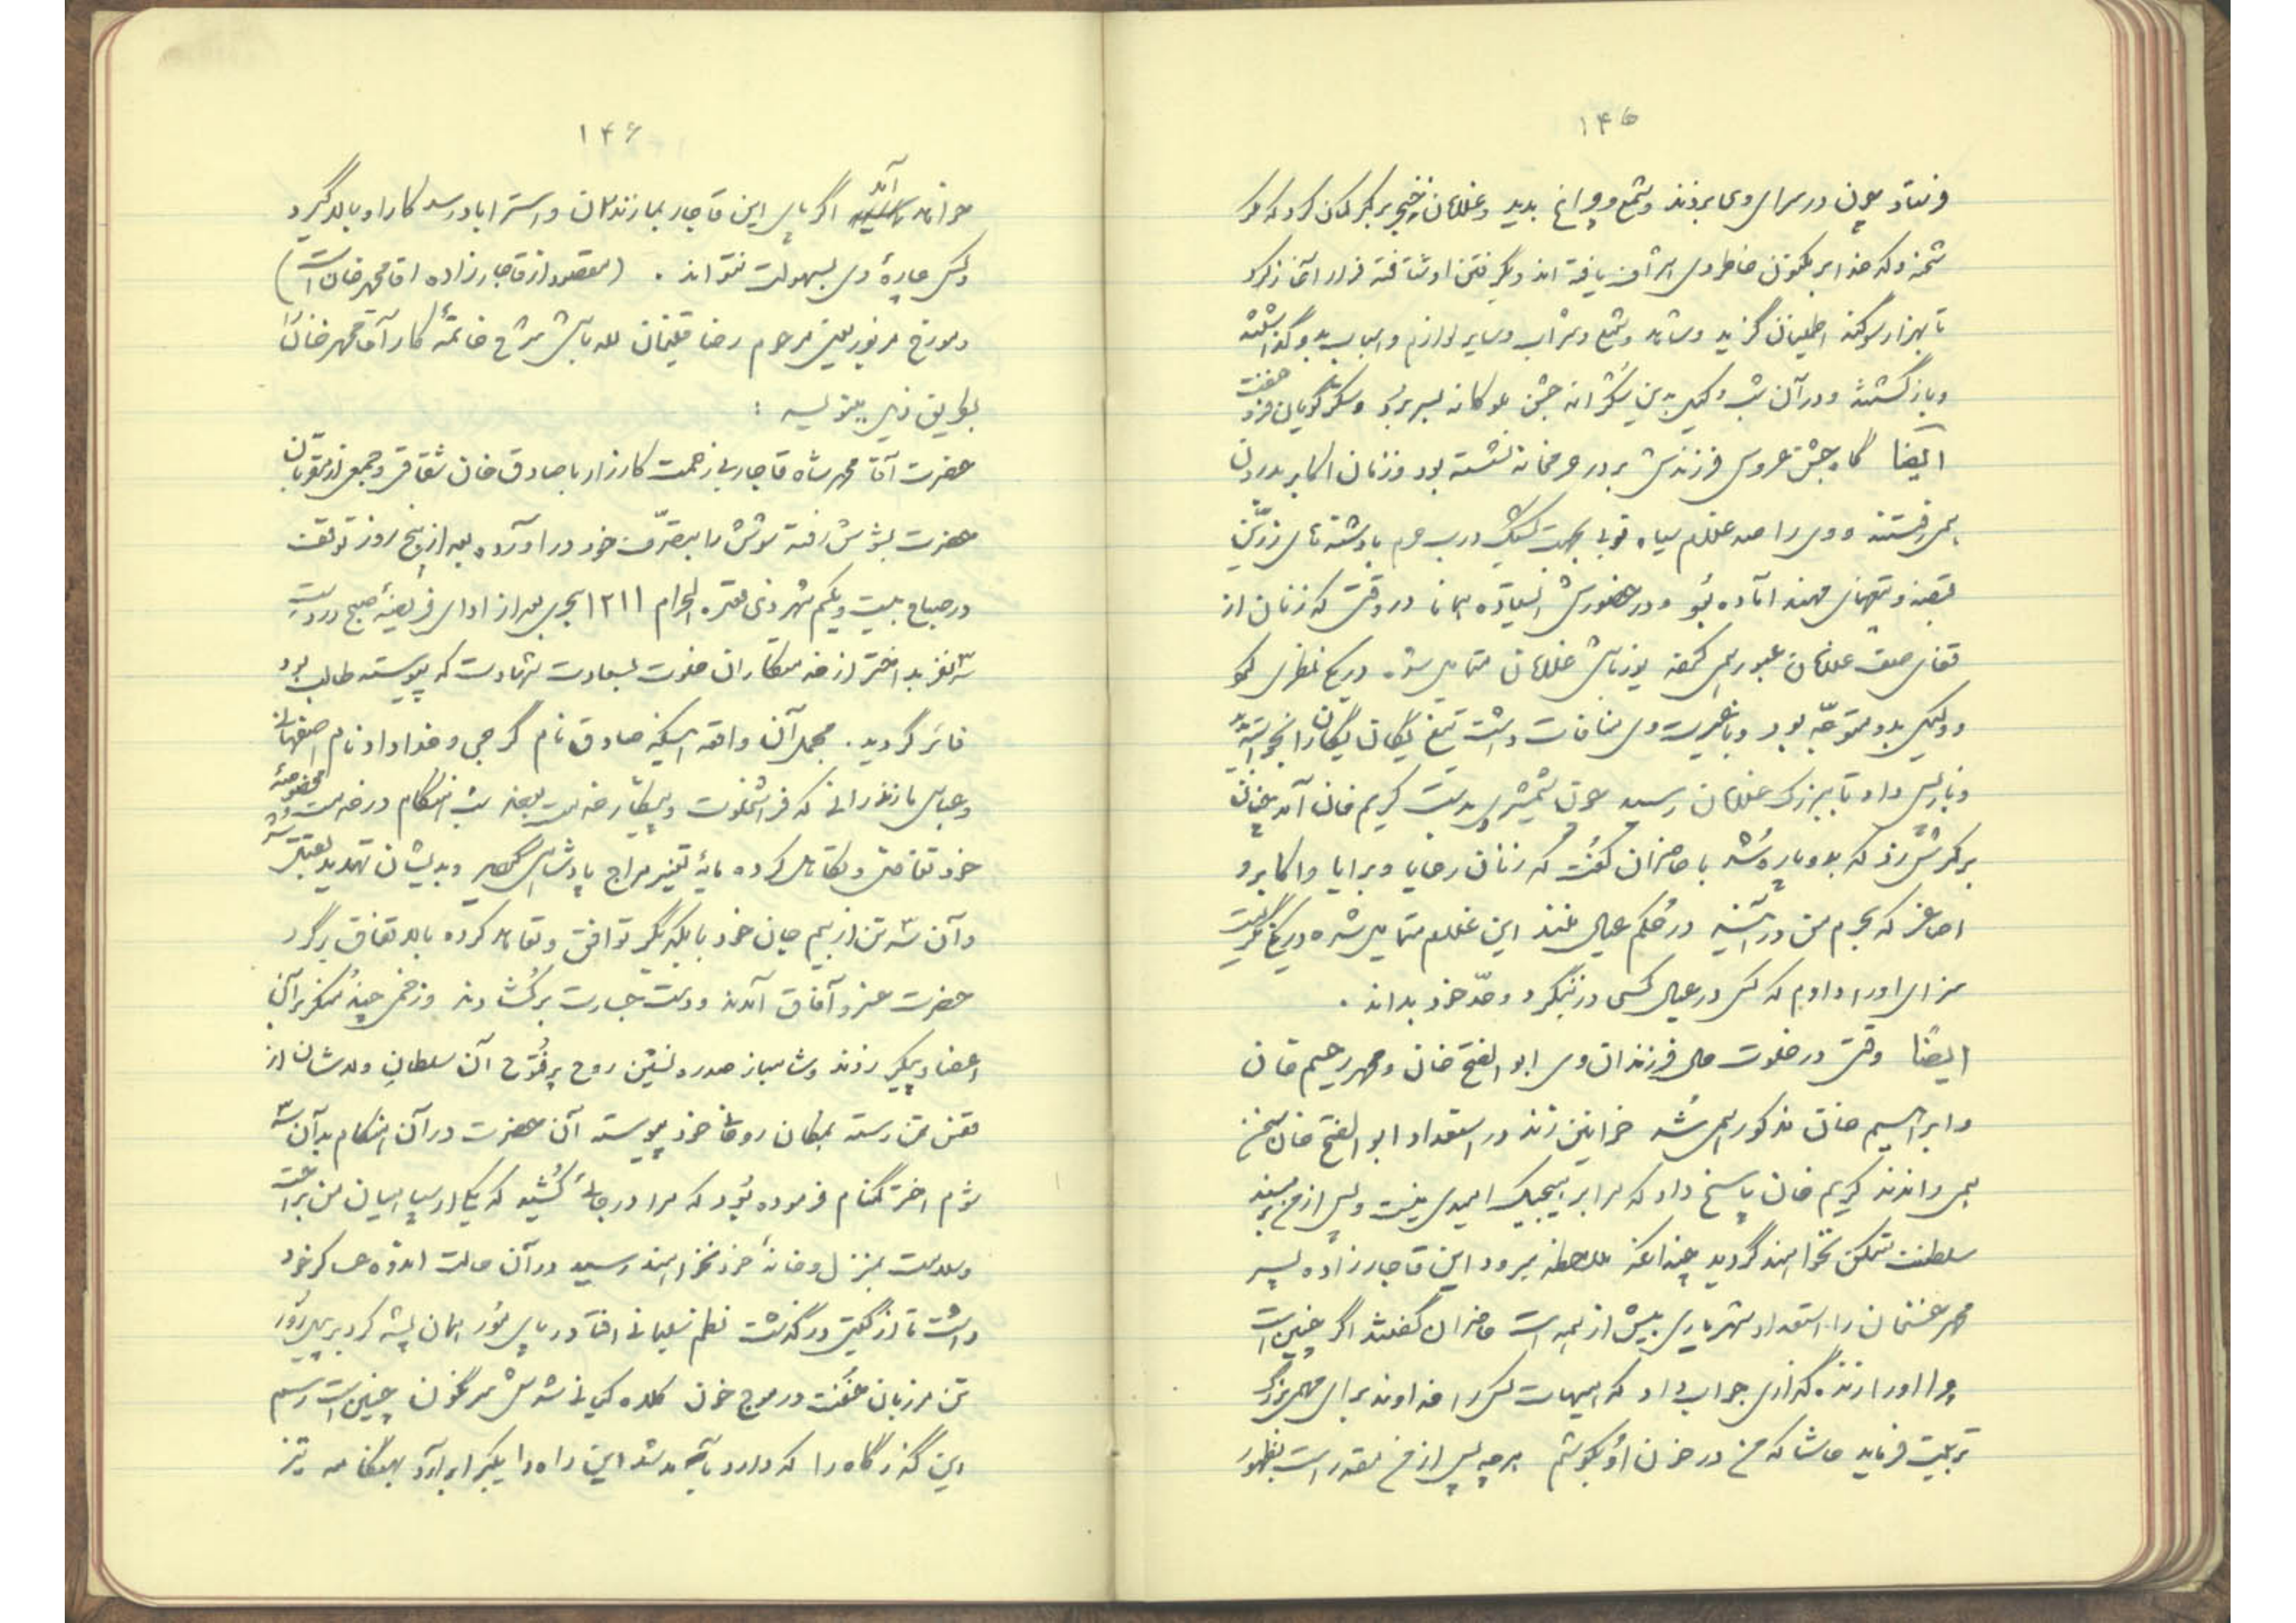 ۱۴۵
فرستاد چون در سرای وی بردند و شمع و چراغ بدید و غلامان زنجیر بر کمر گمان کرد که مگر
شحنه وکه خدا بر مکنون خاطر وی اشراف یافته‌اند و بگرفتن او شتافته قرار آغاز کرد
تا بهزار سوگند اطمینان گزید و شاهد و شمع و شراب و سایر لوازم و اسباب بدو گذاشتند
و بازگشتند و در آن شب وکیل بدین شکرانه جشن ملوکانه بسر برد و شکر گویان فرو خفت
ایضاً گاه جشن عروسی فرزندش بر در حرمخانه نشسته بود و زنان اکابر بدرون
همی رفتند و وی را صد غلام سیاه نوبی بجهت کشیک درب حرم با دشنه‌های زرین
قبضه و تیغهای مهند آماده بود و در حضورش ایستاده همانا در وقتی که زنان از
قفای صف غلامان عبور همی کردند یوزباشی غلامان متمایل شده دریک نظری کرد
و وکیل بدو متوجه بود و با غیرت وی منافات داشت تیغ یگان یگان را بخواسته
و باز پس داد تا ببزرگ غلامان رسید چون شمشیر وی بدست کریم خان آمد چنان
بر کمرش زد که بدو پاره شد با حاضران گفت که زنان رعایا و برایا و اکابر و
اصاغر که بحرم من در آیند در حکم عیال منند این غلام متمایل شده دریک نگریست
سزای او را دادم که کس در عیال کسی در ننگرد و حدّ خود بداند .
ایضاً وقتی در خلوت حال فرزندان وی ابوالفتح خان و محمد رحیم خان
و ابراهیم خان مذکور همی شد خوانین زند در استعداد ابوالفتح خان سخن
همی راندند کریم خان پاسخ داد که مرا بر هیچیک امیدی نیست و پس از من بر مسند
سلطنت متمکن نخواهند گردید چندانکه ملاحظه میرود این قاجار زاده پسر
محمد حسنخان را استعداد شهریاری بیش از همه است حاضران گفتند اگر چنین است
چرا او را زنده گذاری جواب داد که هیهات کسی را خداوند برای مهمی بزرگ
تربیت فرماید حاشا که من در خون او بکوشم هرچه پس از من مقدر است بظهور
۱۴۶
خواهد آمد اگر پای این قاجار بمازندران و استراباد رسد کار او بالا گیرد
و کس چارهٔ وی بسهولت نتواند . (مقصود از قاجار زاده اقا محمد خان است)
و مورخ مزبور یعنی مرحوم رضا قلیخان لله باشی شرح خاتمهٔ کار آقا محمد خان را
بطریق ذیل مینویسد :
حضرت آقا محمد شاه قاجار بی زحمت کارزار با صادق خان شقاقی و جمعی از مقربان
حضرت بشوش رفته شوش را بتصرّف خود در آورده بعد از پنج روز توقف
در صباح بیست و یکم شهر ذی‌قعده الحرام ۱۲۱۱ هجری بعد از ادای فریضهٔ صبح در دست
سه نفر بد اختر از خدمتکاران خلوت بسعادت شهادت که پیوسته طالب بود
فائز گردید . مجمل آن واقعه اینکه صادق نام گرجی و خداداد نام اصفهانی
و عباس مازندرانی که فراش خلوت و پیشکار خدمت بودند شب هنگام در خدمت مخصوصهٔ
خود تغافل و تکاهل کرده مایهٔ تغییر مزاج پادشاهی و بدیشان تهدید بقتل شد
و آن سه تن از بیم جان خود با یکدیگر توافق و تعاهد کرده بالاتفاق بر گرد
حضرت خسرو آفاق آمدند و دست جسارت برگشادند و زخمی چند منکر بر آن
اعضا و پیکر زدند و شاهباز سدره نشین روح پرفتوح آن سلطان والاشان از
قفس تن رسته بمکان روحانی خود پیوسته آن حضرت در آن هنگام بدآن سه
شوم اختر گمنام فرموده بود که مرا در جائی کشید که یکی از سپاهیان من براحت
و سلامت بمنزل و خانهٔ خود نخواهند رسید در آن حالت اندوه عساکر خود
داشت تا از گیتی درگذشت نظم سلیمانی افتاد در پای مور همان پشه کرد بر پیل زور
تن مرزبان خفت در موج خون کلاه کیانی شدش سرنگون چنین است رسم
این گذرگاه را که دارد بآمد شد این راه را یکی را برآرد بهنگامه تیز